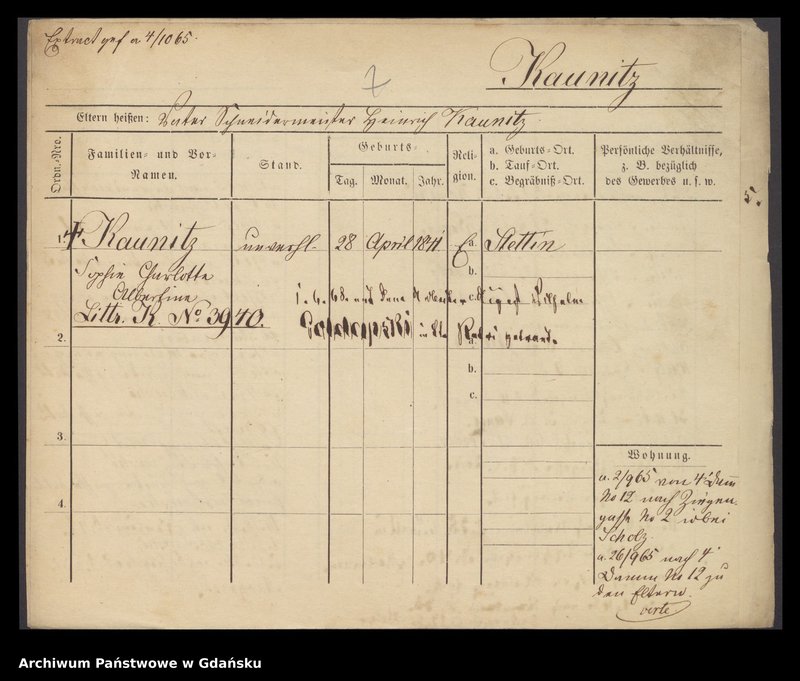 Extract gef a 4/10 65.
Kaunitz
Eltern heißen: Vater Schneidermeister Heinrich Kaunitz
Ordn.-Nro.
Familien- und Vor-
Namen.
Stand.
Geburts-
Tag. Monat. Jahr.
Reli-
gion.
a. Geburts-Ort.
b. Tauf-Ort.
c. Begräbniß-Ort.
Persönliche Verhältnisse,
z. B. bezüglich
des Gewerbes u. s. w.
1. Kaunitz unverhl. 28 April E a. Stettin
Sophie Charlotte
b.
Albertine
c. Wilhelm
Littr. K. No 3940.
2.
a.
b.
c.
3.
Wohnung.
a. 2/9 65 von 4' Damm
No 12 nach Ziegen-
gasse No 2 bei
Scholz.
a. 26/9 65 nach 4'
Damm No 12 zu
den Eltern.
verte
4.
Archiwum Państwowe w Gdańsku